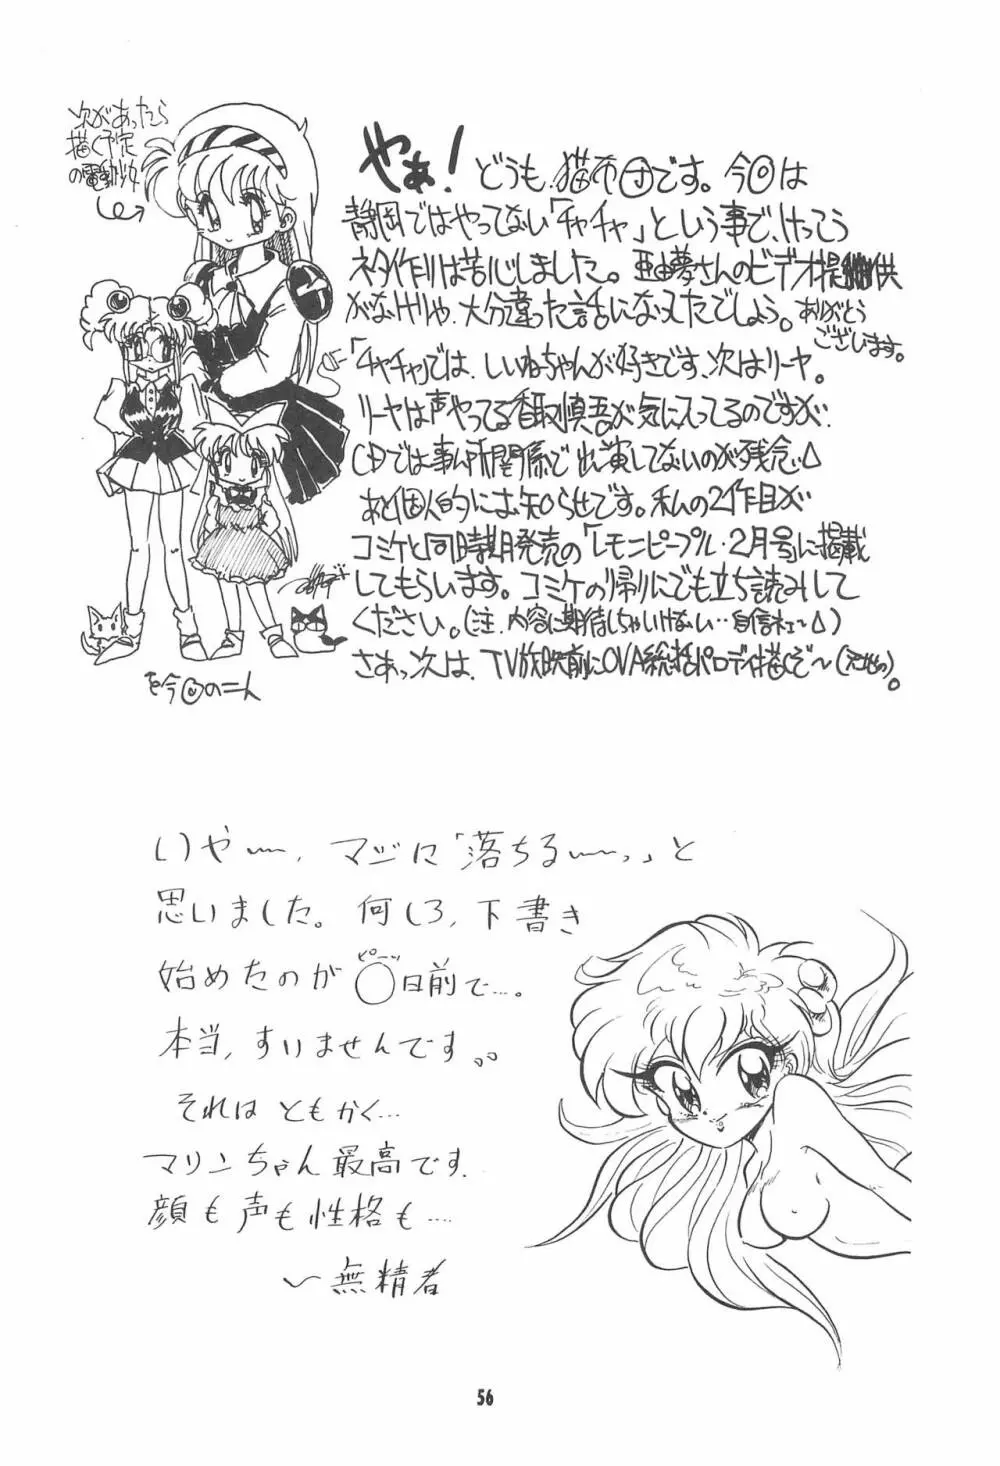 次があったら
描く予定
の電動少女
やぁ！どうも、猫布団です。今回は
静岡ではやってない「チャチャ」という事で、けっこう
ネタ作りは苦心しました。亜由夢さんのビデオ提供
がなけりゃ、大分違った話になってたでしょう。ありがとう
ございます。
「チャチャ」では、しいねちゃんが好きです、次はリーヤ。
リーヤは声やってる香取慎吾が気に入ってるのですが、
CDでは事ム所関係で出演してないのが残念。
あと個人的にお知らせです。私の2作目が
コミケと同時期発売の「レモンピープル・2月号」に掲載
してもらいます。コミケの帰りにでも立ち読みして
ください。(注、内容に期待しちゃいけない‥自信ネェ〜)
さぁっ、次は、TV放映前にOVA総括パロディ描くぞ〜。
を今回の二人
いやー、マジに「落ちるーっ」と
思いました。何しろ、下書き
始めたのが〇(ピーッ)日前で…。
本当、すいませんです。。
それはともかく…
マリンちゃん最高です。
顔も声も性格も…
〜無精者
56